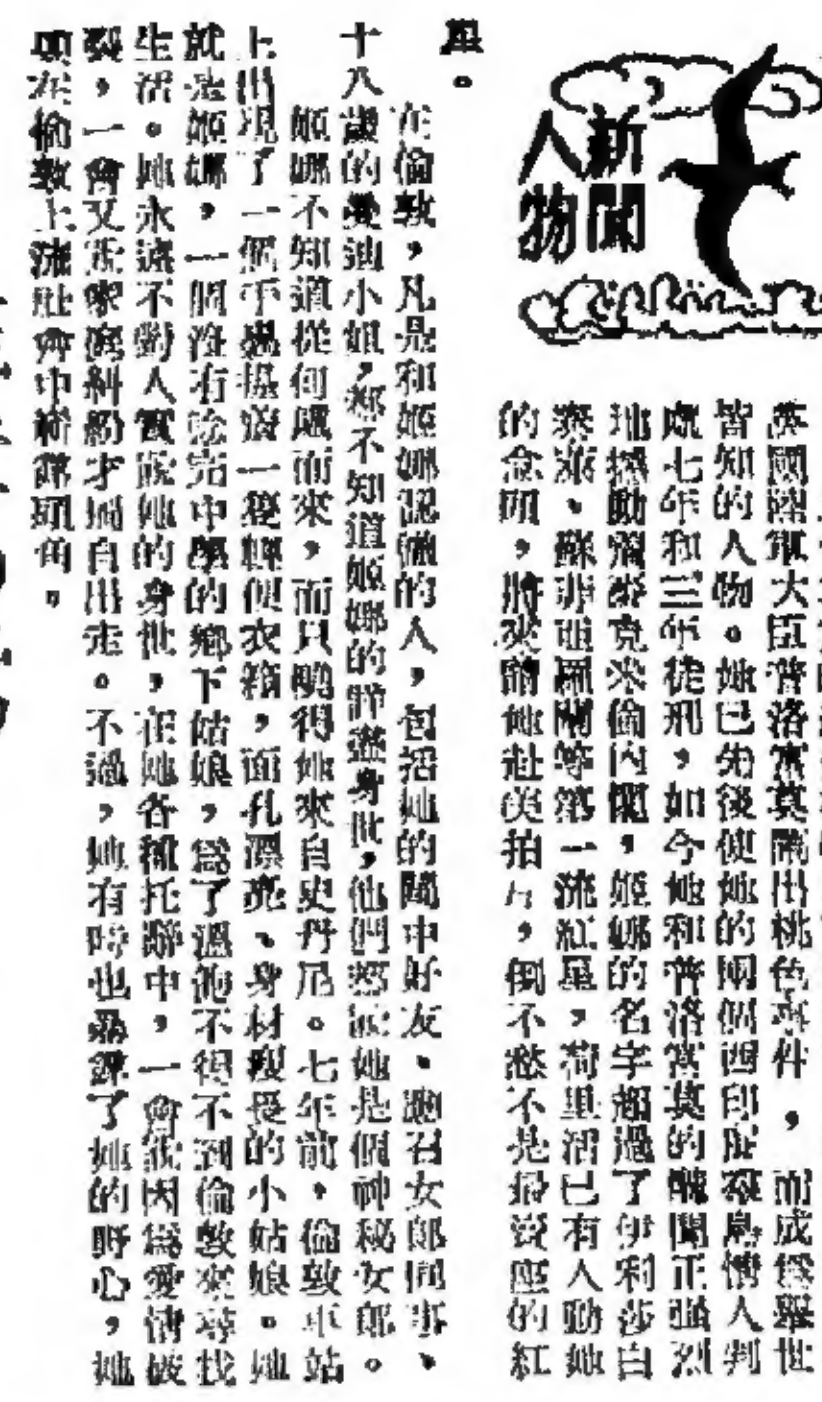 新聞
人物
英國陸軍大臣普洛富莫鬧出桃色事件，而成爲舉世
皆知的人物。她已先後使她的兩個西印度羣島情人判
處七年和三年徒刑，如今她和普洛富莫的醜聞正強烈
地撼動獨麥克米倫內閣，姬娜的名字超過了伊利莎白
泰萊、蘇菲亞羅蘭等第一流紅星，荷里活已有人動她
的念頭，將來請她赴美拍片，倒不愁不是最賣座的紅
星。
在倫敦，凡是和姬娜認識的人，包括她的閨中好友、應召女郎同事、
十八歲的曼迪小姐，都不知道姬娜的詳盡身世，他們都說她是個神秘女郎。
姬娜不知道從何處而來，而只曉得她來自史丹尼。七年前，倫敦車站
上出現了一個手裏提着一隻輕便衣箱，面孔漂亮、身材瘦長的小姑娘。她
就是姬娜，一個沒有唸完中學的鄉下姑娘，爲了溫飽不得不到倫敦來尋找
生活。她永遠不對人實說她的身世，在她各種托辭中，一會說因爲愛情破
裂，一會又說家庭糾紛才獨自出走。不過，她有時也暴露了她的野心，她
要在倫敦上流社會中嶄露頭角。